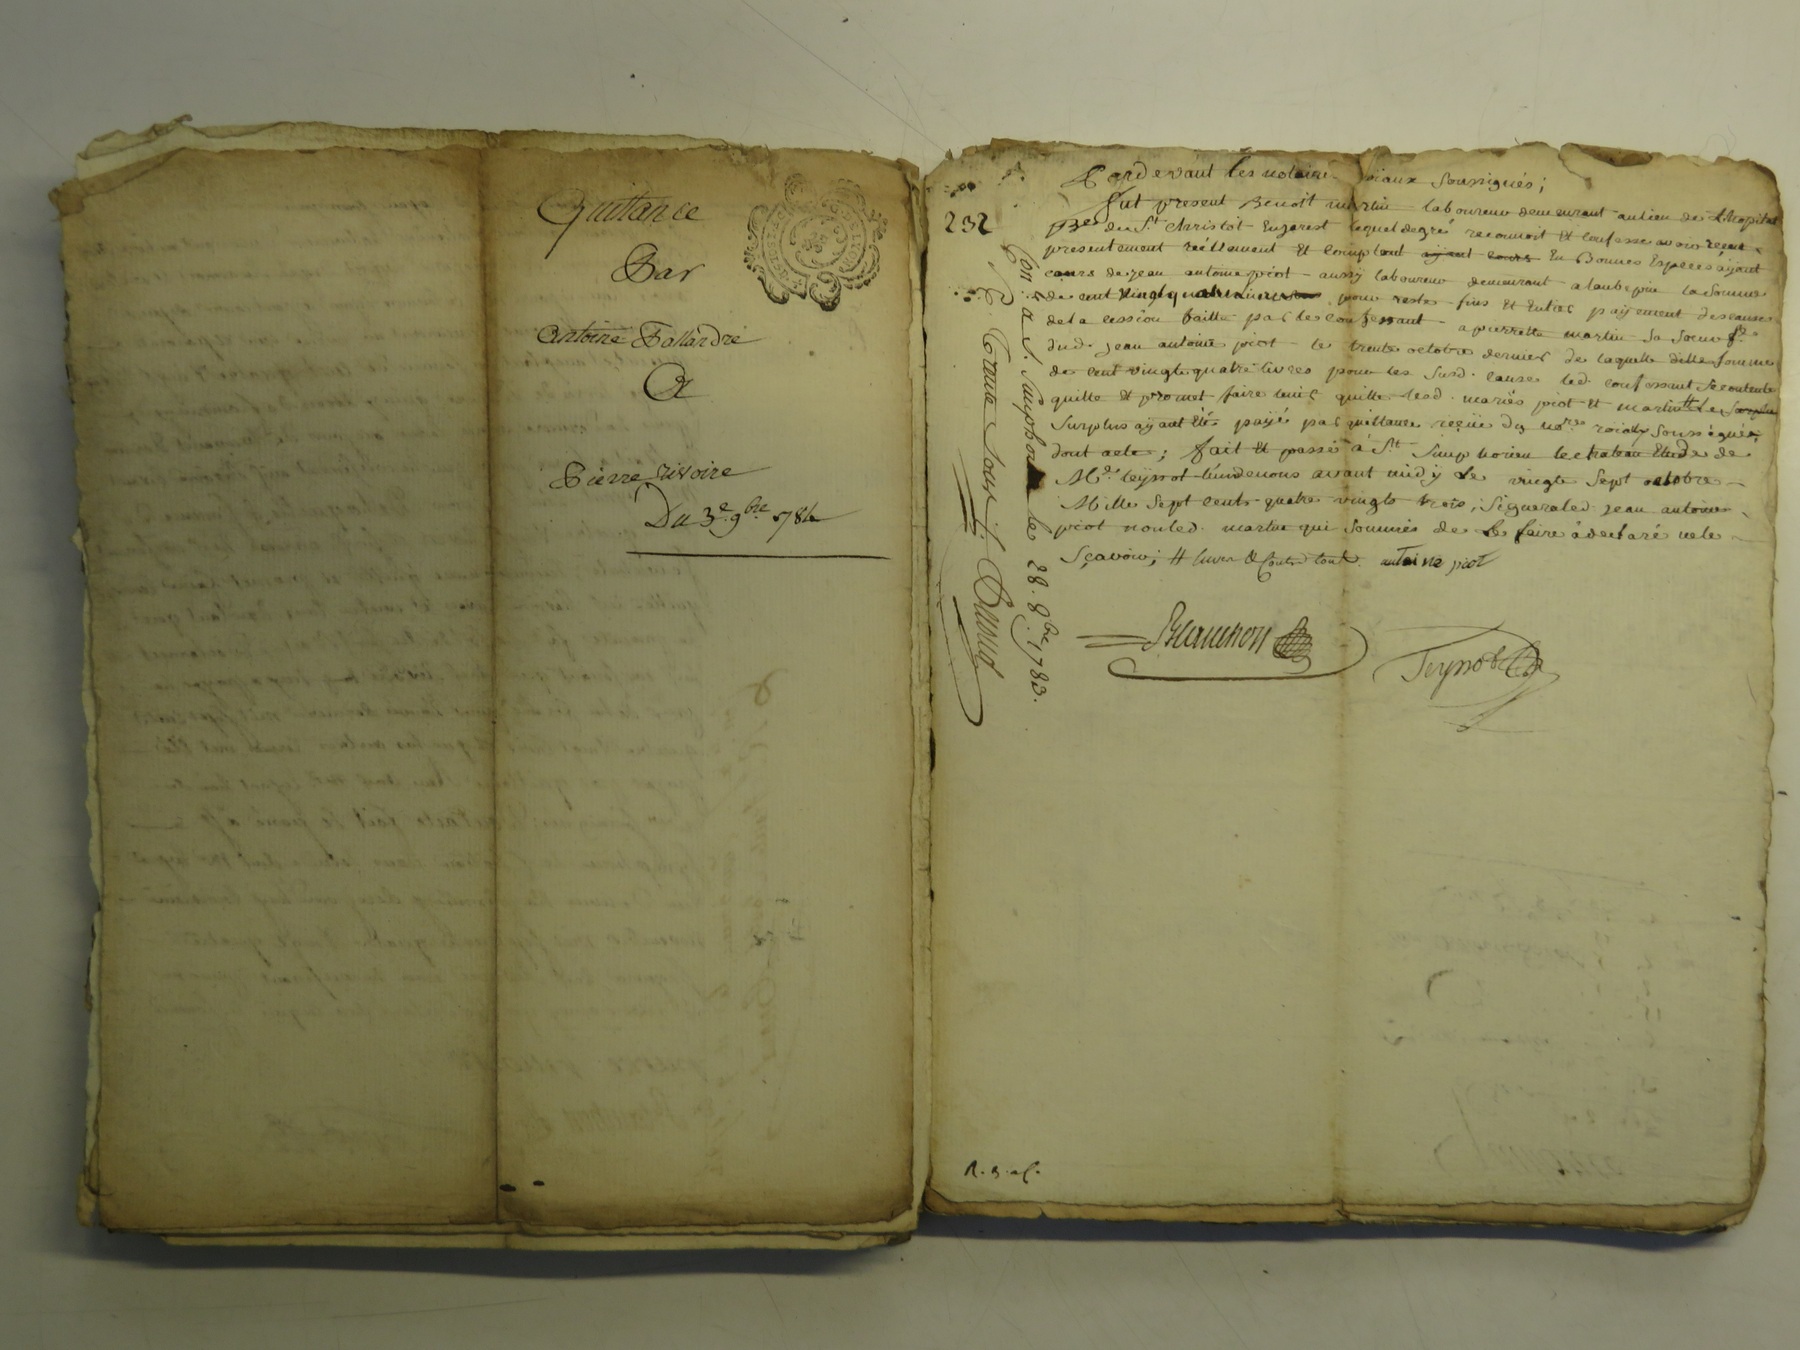 Quittance
Par
Antoine Fallandre
A
Pierre Rivoire
Du 3e. 9bre 1784
232
Pardevant les notaires roiaux soussignés;
fut present Benoit martin laboureur demeurant au lieu de L'hopital
psse de St. christôt En jarest lequel de gré reconnoit et confesse avoir receu
presentement réellement et comptant ayant cours En Bonnes Especes ayant
cours de jean antoine piot aussy laboureur demeurant a laubepin la somme
de cent vingt quatre livres pour reste fins et Entier payement des causes
de la cession faitte par le confessant a pierrette martin sa soeur fe.
dud. jean antoine piot le trente octobre dernier de laquelle ditte somme
de cent vingt quatre livres pour les susd. causes led. confessant se contente
quitte et promet faire tenir quitte lesd. mariés piot et martin # Le surplus
surplus ayant été payé par quittance reçüe dy nores roiaux soussignés,
dont acte; fait et passé à St. simphorien le chateau Etude de
Me. teyssot l'un de nous avant midy Le vingt sept octobre
Mille sept cents quatre vingts trois, signera led. jean antoine
piot non led. martin qui sommés de Le faire à declaré ne le
sçavoir; # livres et Controlle antoine piot
Blanchon
Teyssot
Con. à S. Simphorien le 28. 8bre 1783.
R. trente sous
R. 3. af.